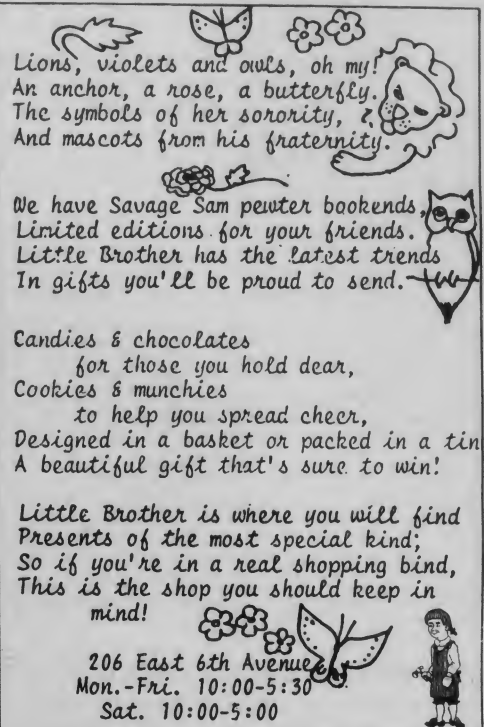 Lions, violets and owls, oh my!
An anchor, a rose, a butterfly.
The symbols of her sorority,
And mascots from his fraternity.
We have Savage Sam pewter bookends,
Limited editions for your friends.
Little Brother has the latest trends
In gifts you'll be proud to send.
Candies & chocolates
for those you hold dear,
Cookies & munchies
to help you spread cheer,
Designed in a basket or packed in a tin
A beautiful gift that's sure to win!
Little Brother is where you will find
Presents of the most special kind;
So if you're in a real shopping bind,
This is the shop you should keep in
mind!
206 East 6th Avenue
Mon.-Fri. 10:00-5:30
Sat. 10:00-5:00